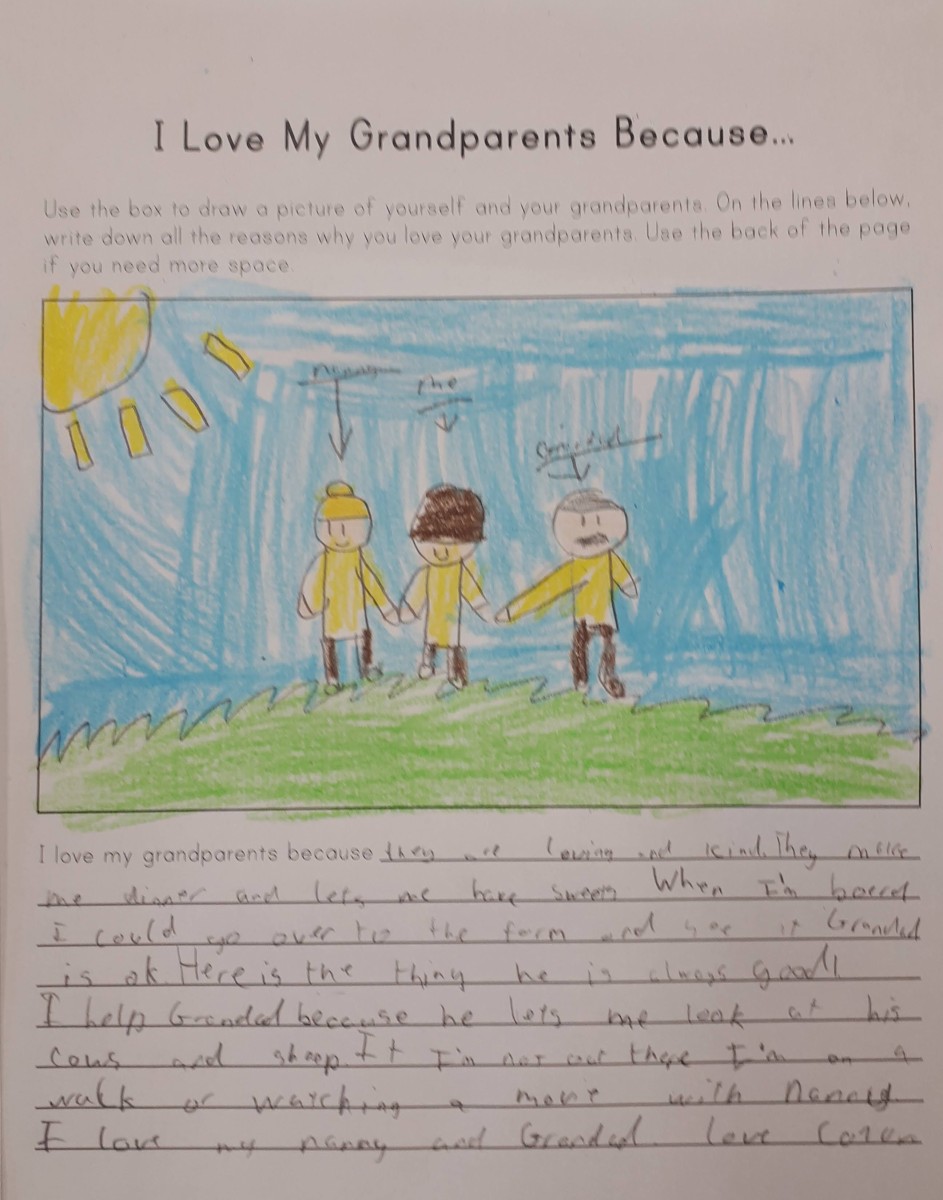 I Love My Grandparents Because...
Use the box to draw a picture of yourself and your grandparents. On the lines below,
write down all the reasons why you love your grandparents. Use the back of the page
if you need more space.
me
I love my grandparents because they are loving and kind. They make
me dinner and lets me have sweets When I'm bored
I could go over to the farm and see if Grandad
is ok. Here is the thing he is always good!
I help Grandad because he lets me look at his
cows and sheep. If I'm not out there I'm on a
walk or watching a movie with nanny.
I love my nanny and Grandad. love